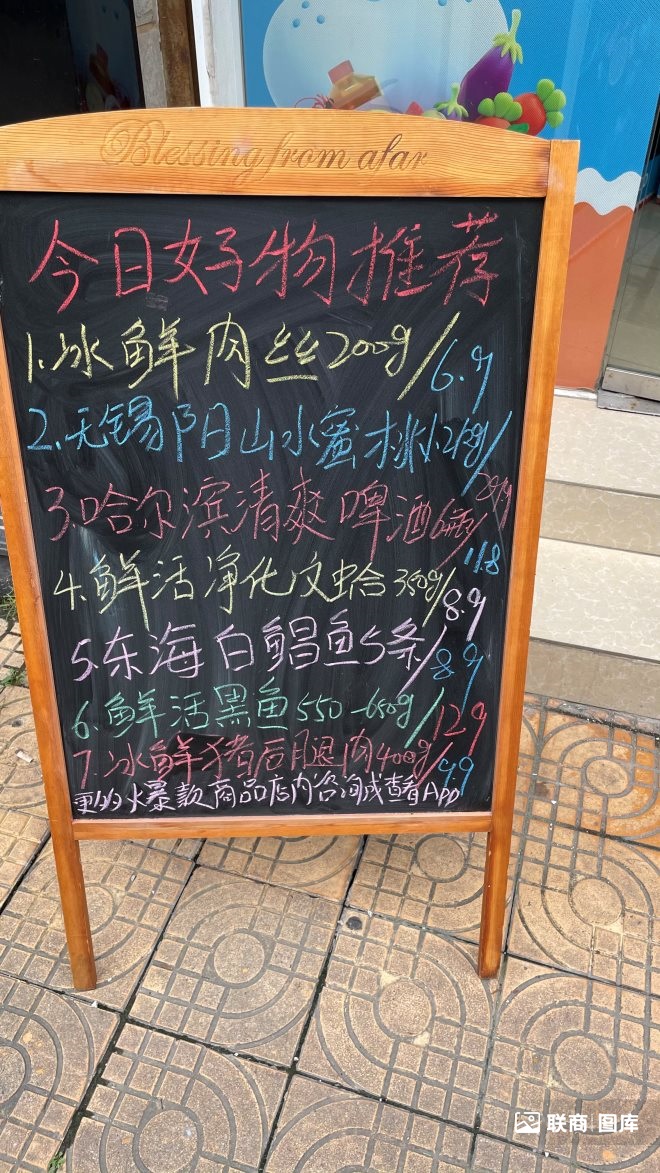 Blessing from afar
今日好物推荐
1.冰鲜肉丝200g/6.9
2.无锡阳山水蜜桃
3.哈尔滨清爽啤酒6瓶/11.8
4.鲜活净化文蛤350g/8.9
5.东海白鲳鱼5条/8.9
6.鲜活黑鱼550-650g/12.9
7.冰鲜猪后腿肉400g/9.9
更多火爆款商品店内咨询或查看App
联商 图库